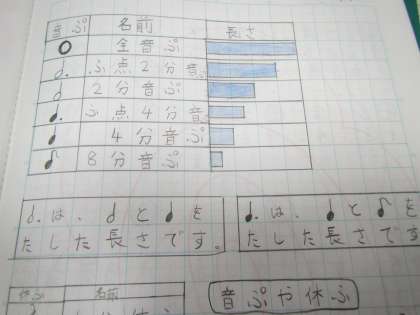 音ぷ 名前 長さ
全音ぷ
ふ点2分音ぷ
2分音ぷ
ふ点4分音ぷ
4分音ぷ
8分音ぷ
は、 と を
たした長さです。
は、 と を
たした長さです
名前
音ぷや休ふ